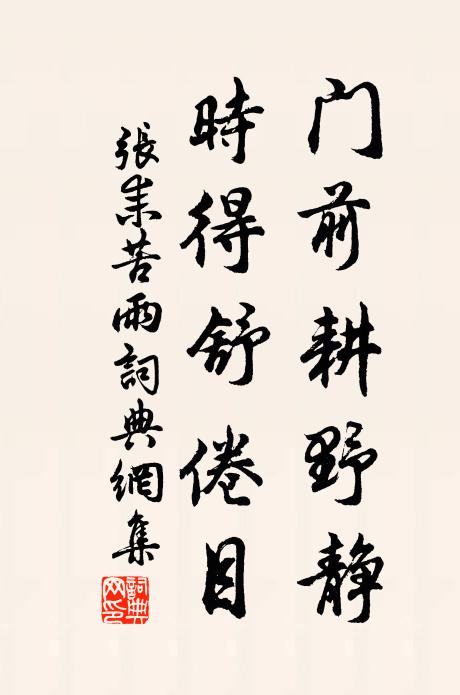 门前耕野静
時得舒倦目
張耒苦雨詞典網集
詞典網印